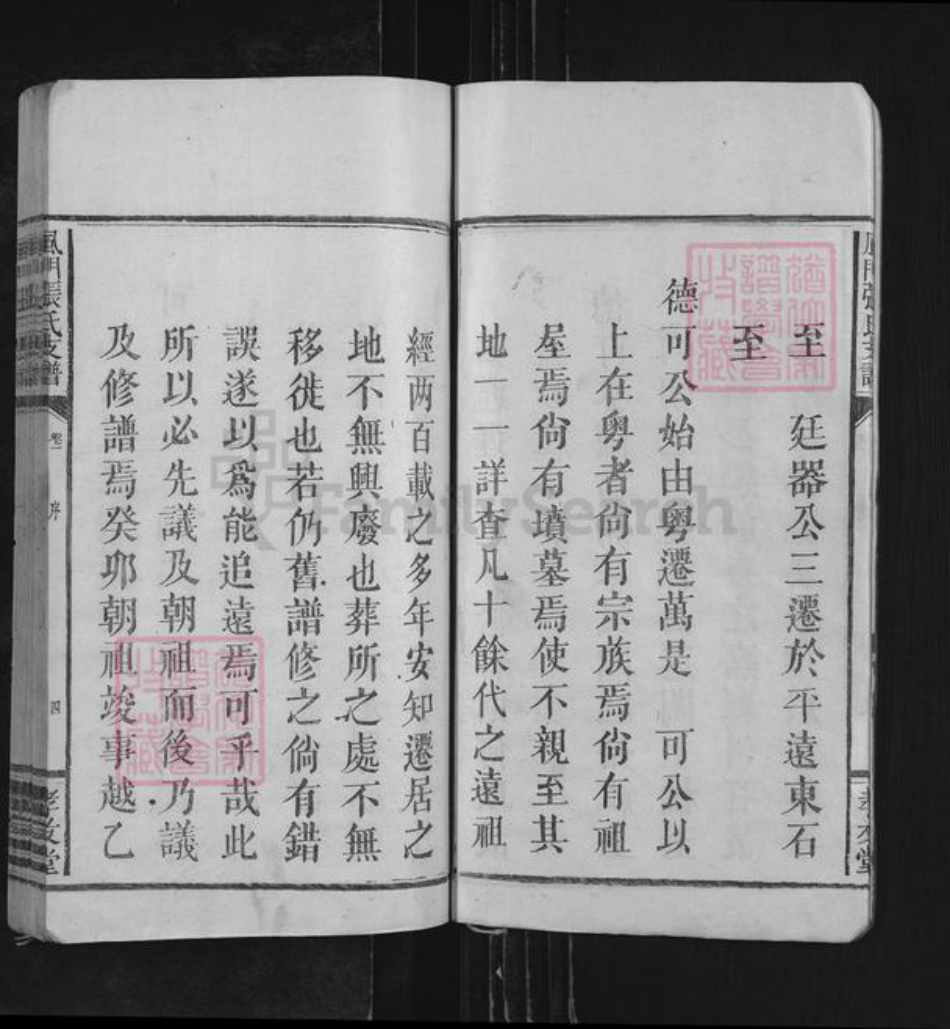 至　廷器公三遷於平遠東石
至
德可公始由粤遷萬是　可公以
上在粤者尙有宗族焉尙有祖
屋焉尙有墳墓焉使不親至其
地一一詳查凡十餘代之遠祖
經两百載之多年安知遷居之
地不無興廢也葬所之處不無
移徙也若仍舊譜修之倘有錯
誤遂以爲能追遠焉可乎哉此
所以必先議及朝祖而後乃議
及修譜焉癸卯朝祖竣事越乙
張氏支譜
卷一
序
四
堂
FamilySearch